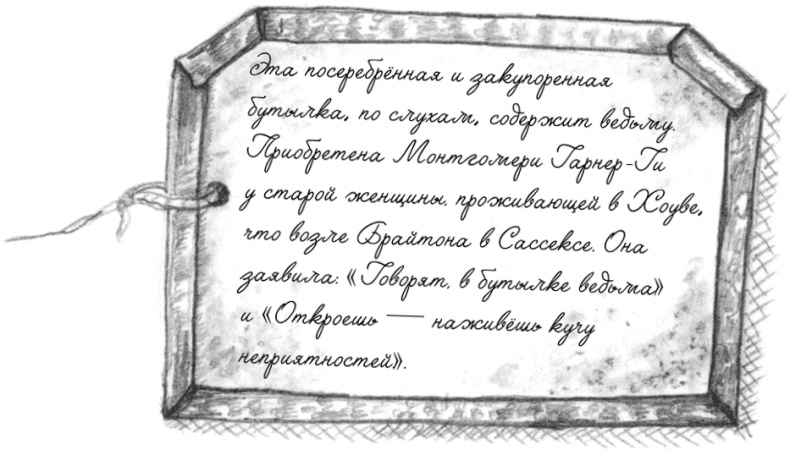 Эта посеребрённая и закупоренная
бутылка, по слухам, содержит ведьму.
Приобретена Монтгомери Гарнер-Ги
у старой женщины, проживающей в Хоуве,
что возле Брайтона в Сассексе. Она
заявила: «Говорят, в бутылке ведьма»
и «Откроешь — наживёшь кучу
неприятностей».